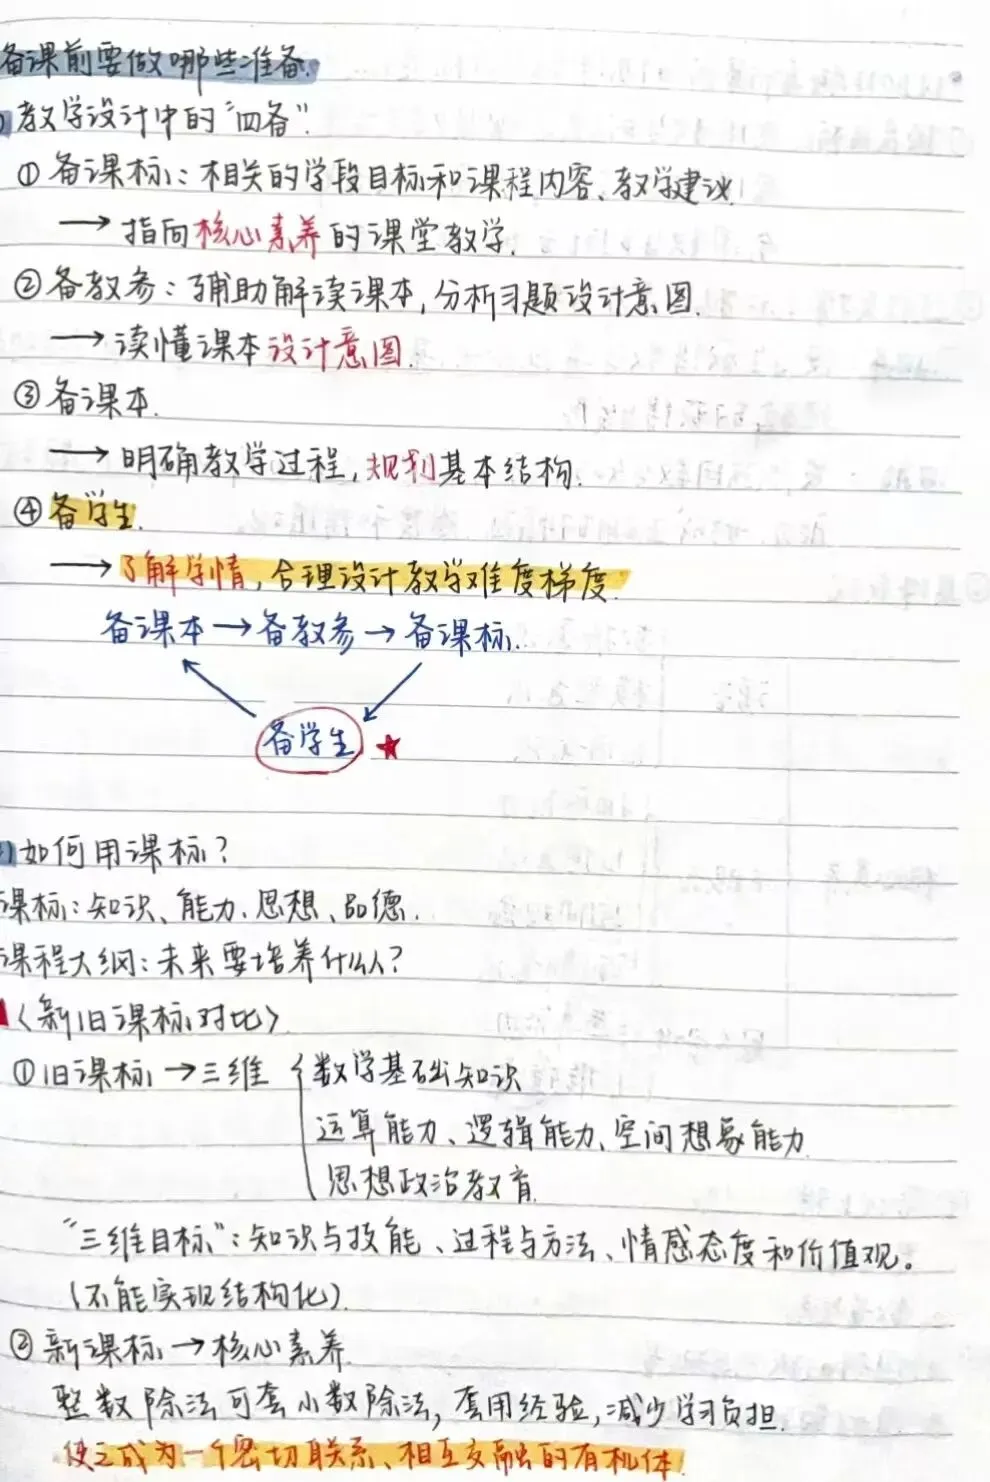 备课前要做哪些准备.
)教学设计中的“四备”.
① 备课标: 相关的学段目标和课程内容、教学建议.
→ 指向核心素养的课堂教学.
② 备教参: 辅助解读课本, 分析习题设计意图.
→ 读懂课本设计意图.
③ 备课本.
→ 明确教学过程, 规划基本结构.
④ 备学生.
→ 了解学情, 合理设计教学难度梯度.
备课本 → 备教参 → 备课标.
备学生 ★
)如何用课标?
课标: 知识、能力、思想、品德.
课程大纲: 未来要培养什么人?
〈新旧课标对比〉
① 旧课标 → 三维 { 数学基础知识
运算能力、逻辑能力、空间想象能力.
思想政治教育.
“三维目标”: 知识与技能、过程与方法、情感态度和价值观。
(不能实现结构化).
② 新课标 → 核心素养.
整数除法可套小数除法, 套用经验, 减少学习负担.
使之成为一个密切联系、相互交融的有机体.